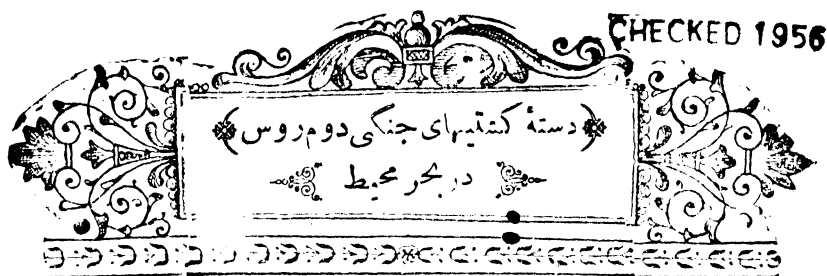 CHECKED 1956
دستهٔ کشتیهای جنگی دوم روس
در بحر محیط